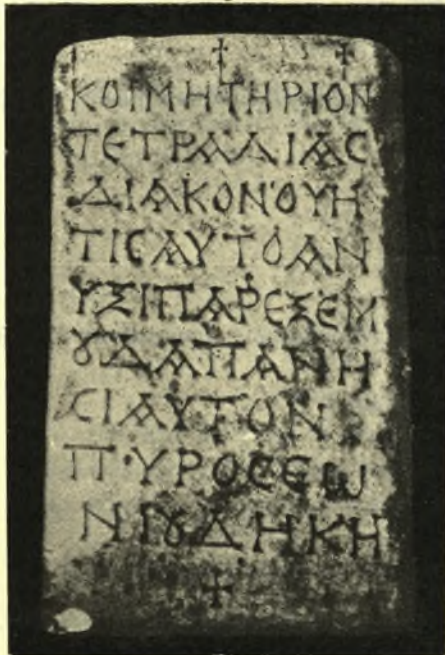 ΚΟΙΜΗΤΗΡΙΟΝ
ΤΕΤΡΑΔΙΑΣ
ΔΙΑΚΟΝΟΥΗ
ΤΙϹΑΥΤΟΑΝ
ΥΞΙΠΑΡΕΞΕΜ
ȢΔΑΠΑΝΗ
ϹΙΑΥΤΟΝ
ΠΥΡΟϹΕΩ
ΝΙȢΔΗΚΗ